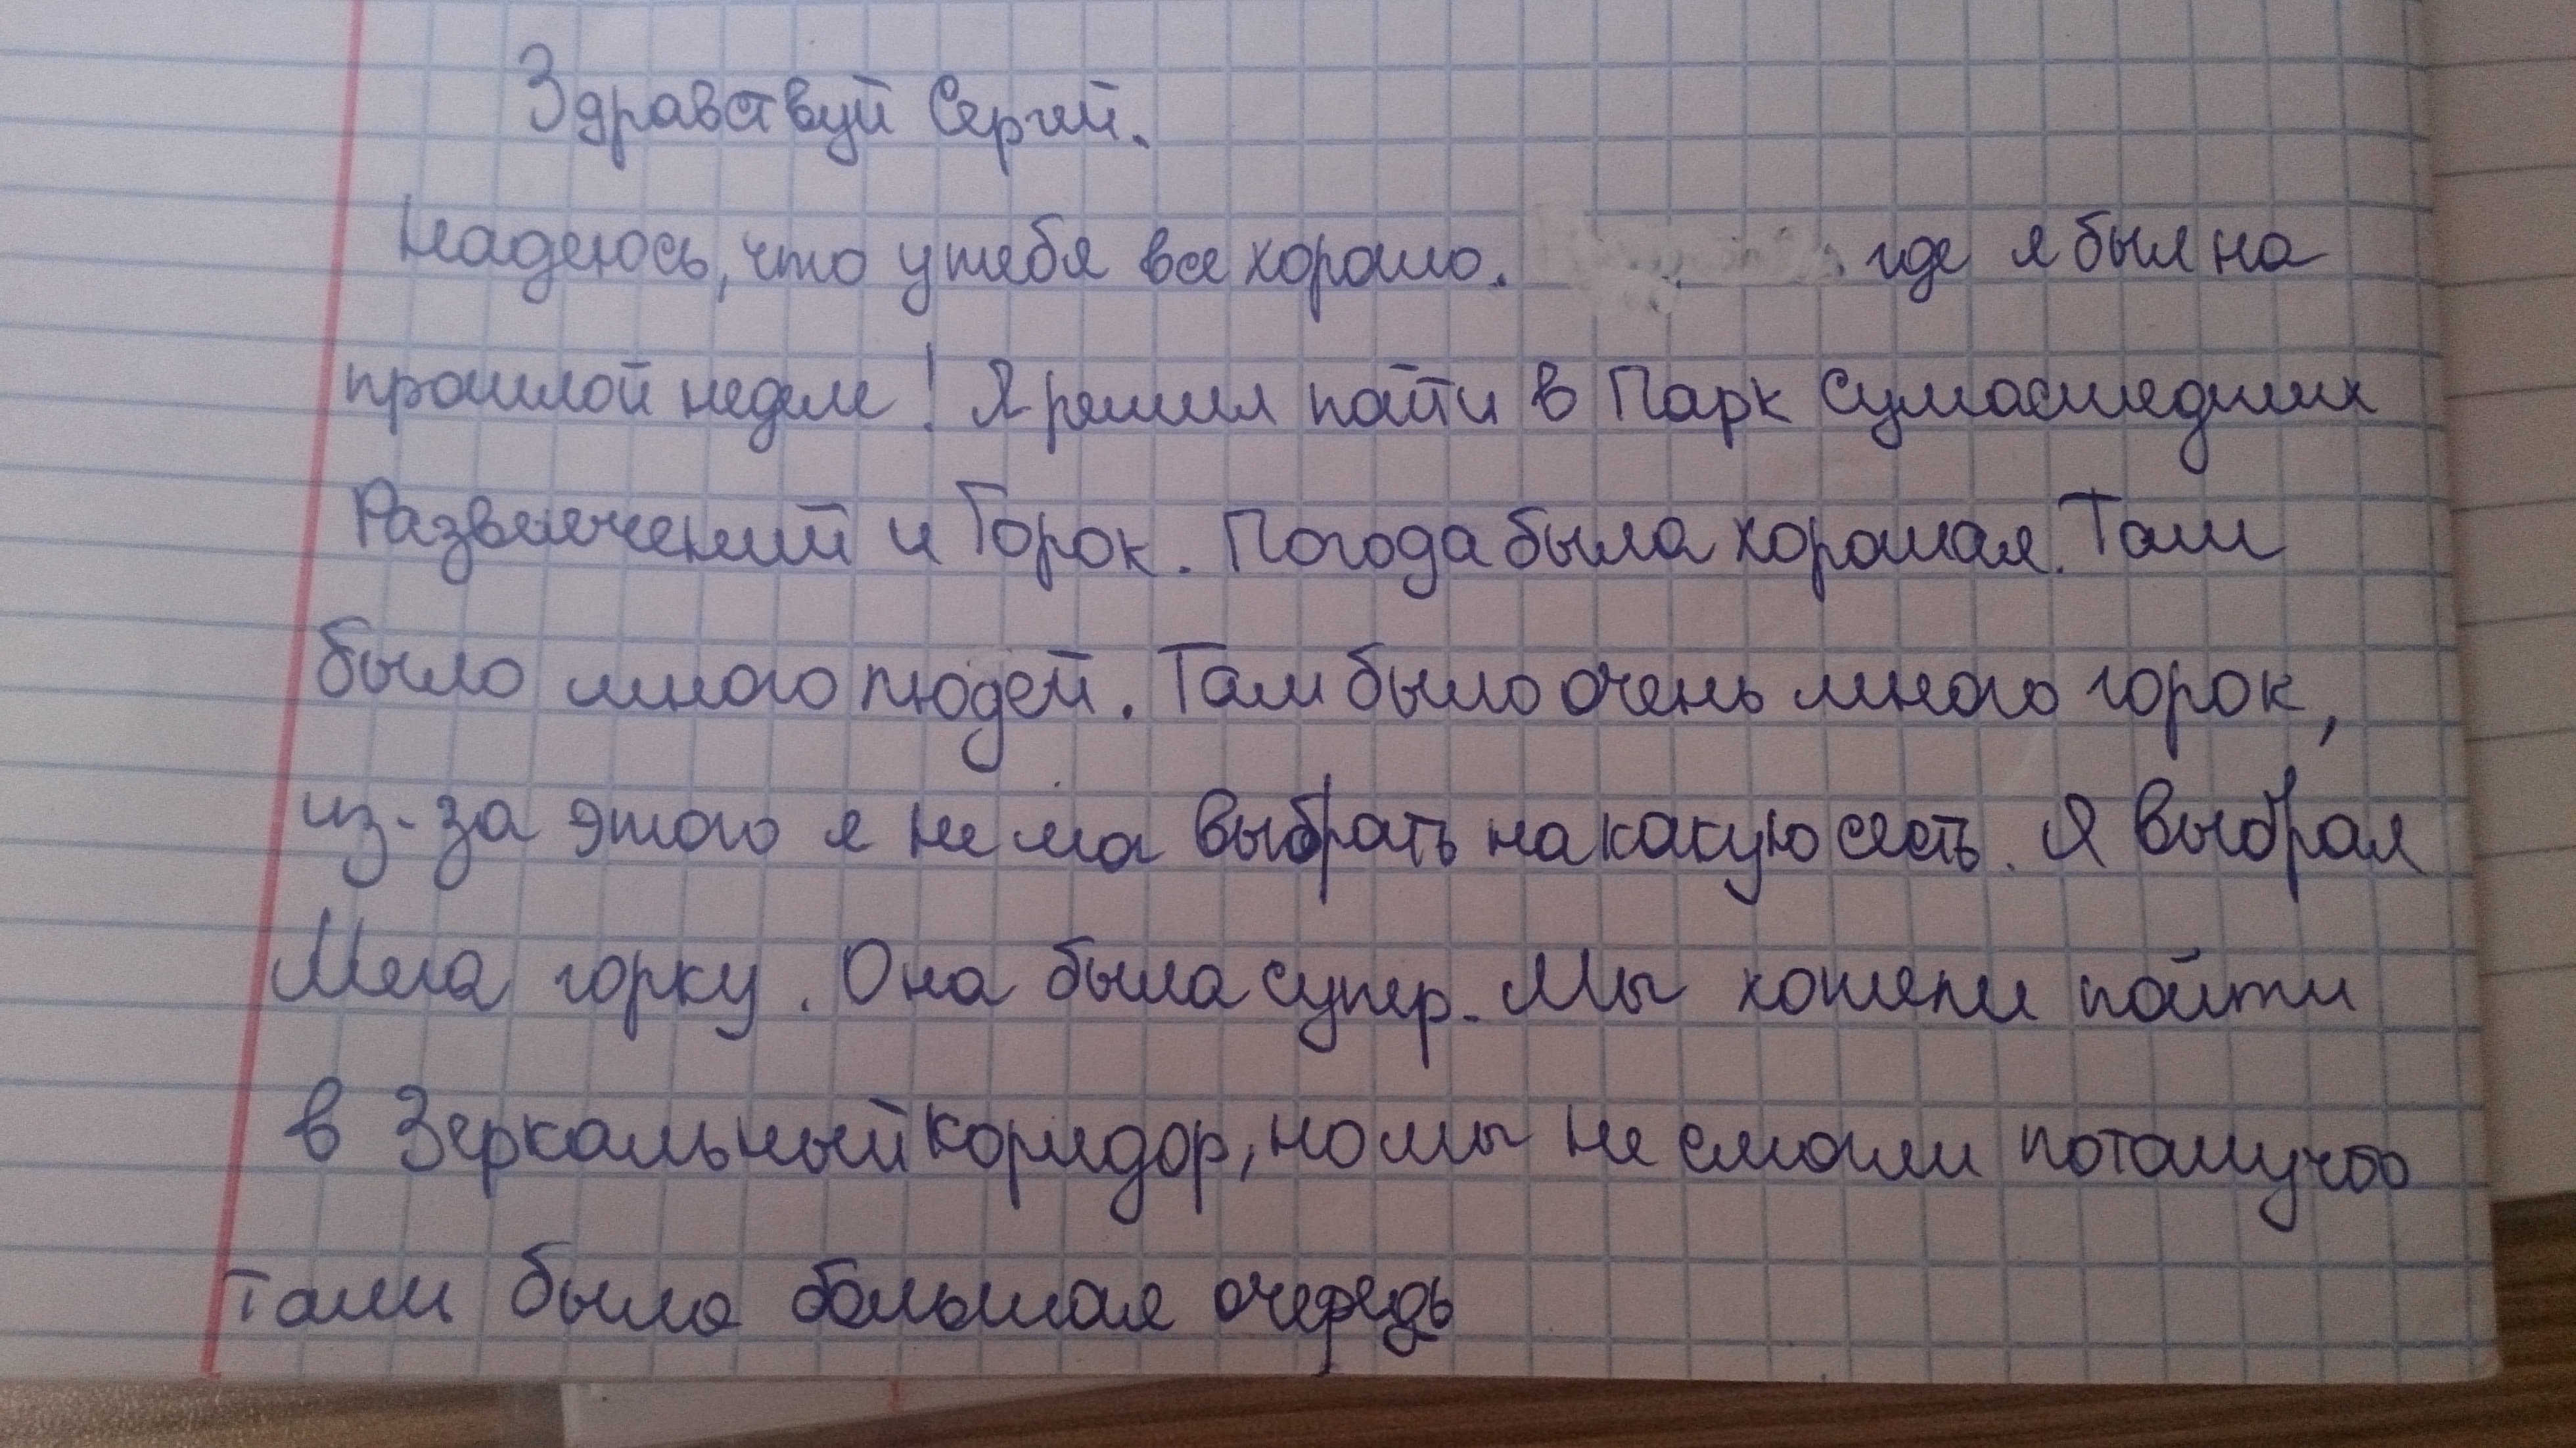 Здравствуй Сергий.
Надеюсь, что у тебя все хорошо. где я был на
прошлой неделе! Я решил пайти в Парк Сумасшедших
Развлечений и Горок. Погода была хорошая. Там
было много людей. Там было очень много горок,
из-за этого я не мог выбрать на какую сесть. Я выбрал
Мега горку. Она была супер. Мы хотели пойти
в Зеркальный коридор, но мы не смогли потомучто
там была большая очередь